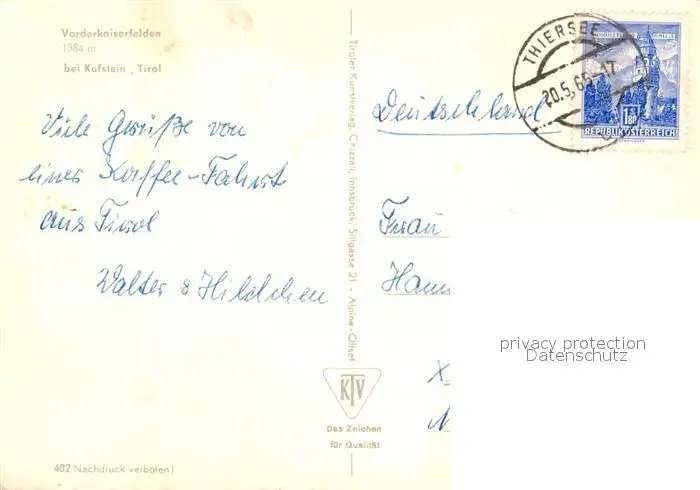 Vorderkaiserfelden
1384 m
bei Kufstein, Tirol
Viele Grüße von
einer Kaffee-Fahrt
aus Tirol
Walter & Hildchen
Tiroler Kunstverlag, Chizzali, Innsbruck, Sillgasse 21 - Alpine-Offset
KTV
Das Zeichen
für Qualität
402 Nachdruck verboten!
THIERSEE
20.5.65-17
1.80
REPUBLIK ÖSTERREICH
Deutschland
Frau
Hann
privacy protection
Datenschutz